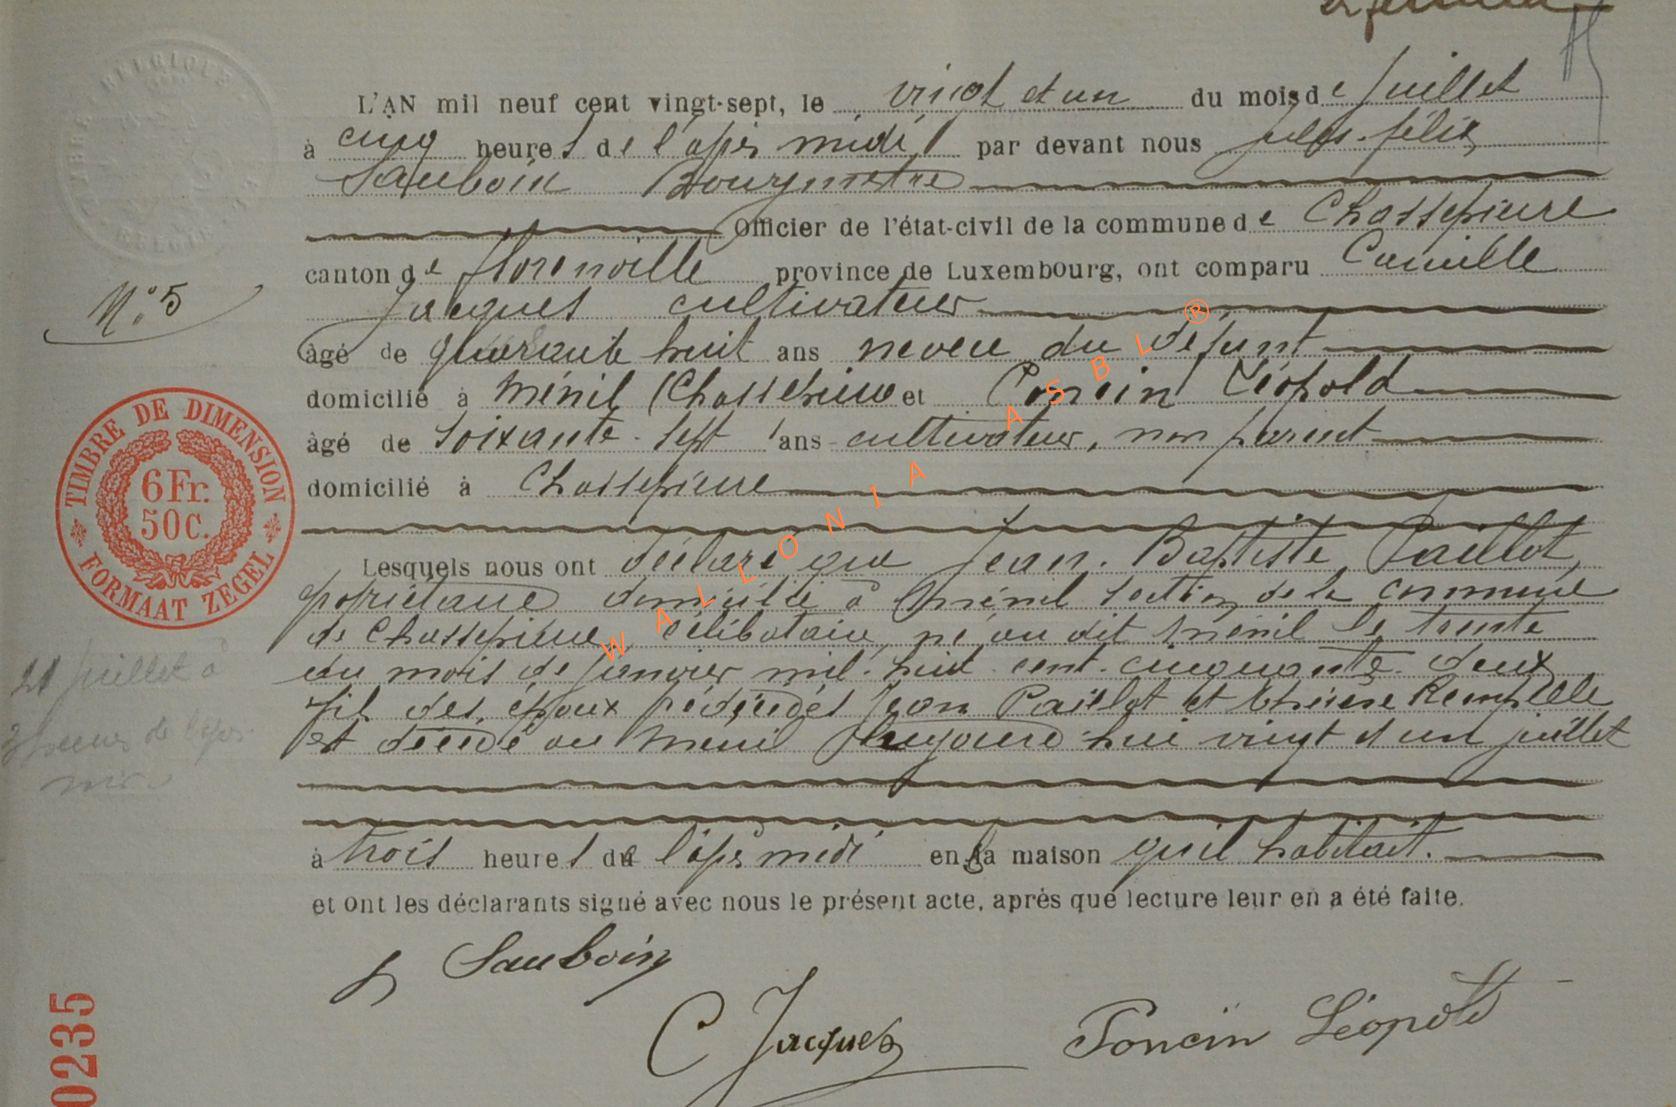 L'AN mil neuf cent vingt-sept, le vingt et un du mois de Juillet
à cinq heures de l'après midi par devant nous Jules-félix
Sauboin Bourgmestre
Officier de l'état-civil de la commune de Chassepierre
canton de florenville province de Luxembourg, ont comparu Camille
N° 5
Jacques cultivateur
âgé de quarante huit ans neveu du défunt
domicilié à Ménil (Chassepierre et Poncin Léopold
âgé de soixante-sept ans cultivateur, non parent
domicilié à Chassepierre
TIMBRE DE DIMENSION
6Fr.
50c.
FORMAAT ZEGEL
Lesquels nous ont déclaré que Jean-Baptiste Paillot,
propriétaire domicilié à Ménil section de la commune
de Chassepierre, célibataire, né au dit Ménil le trente
du mois de Janvier mil-huit-cent-cinquante-deux
fils des époux décédés Jean Paillot et Thérèse
est décédé au Menil aujourd'hui vingt et un juillet
21 Juillet à
3 heures de l'après
midi
à trois heures de l'après midi en sa maison qu'il habitait.
et ont les déclarants signé avec nous le présent acte, après que lecture leur en a été faite.
J Sauboin
C Jacques
Poncin Léopold
0235
WALLONIA ASBL ®